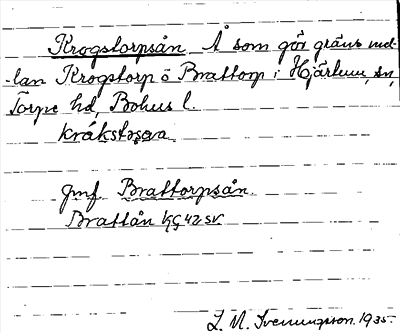 Krogstorpsån Å som gör gräns mel-
-lan Krogstorp o Brattorp i Hjärtum, sn,
Torpe hd, Bohus l.
kråkståsa
Jmf. Brattorpsån.
Brattån KG 42 SV
L. M. Svenungsson. 1935.